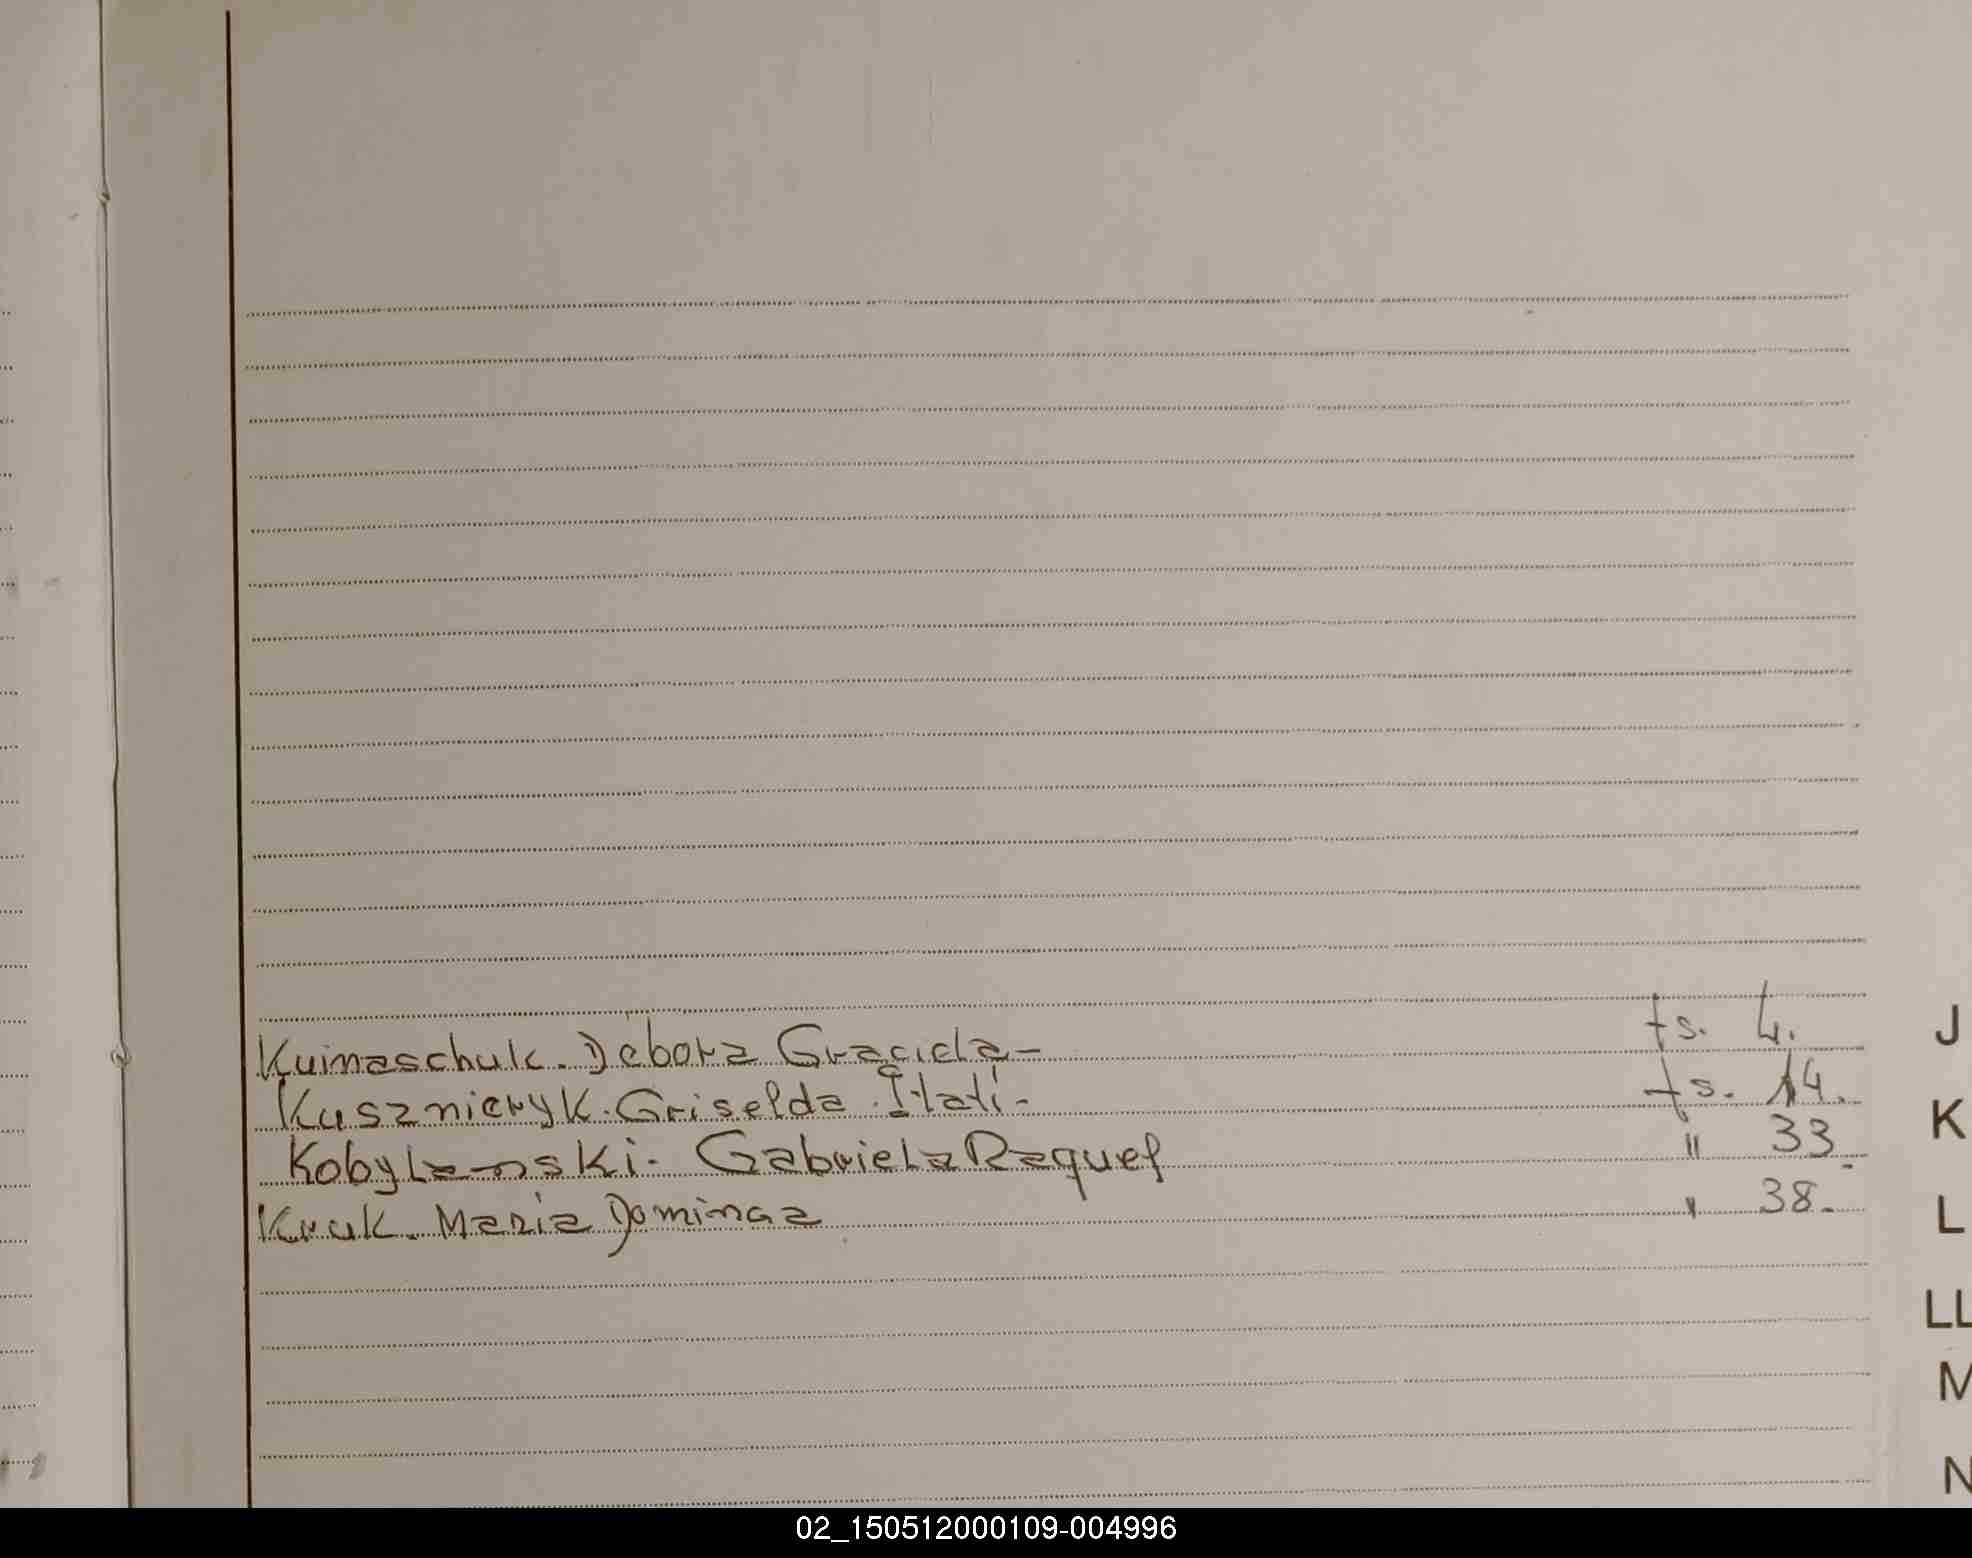 Kuinaschuk. Debora Graciela- fs. 4.
Kusznieryk. Griselda Itati- fs. 14.
Kobylanski. Gabriela Raquel " 33.
Kruk. Maria Dominga " 38.
J
K
L
LL
M
N
02_150512000109-004996